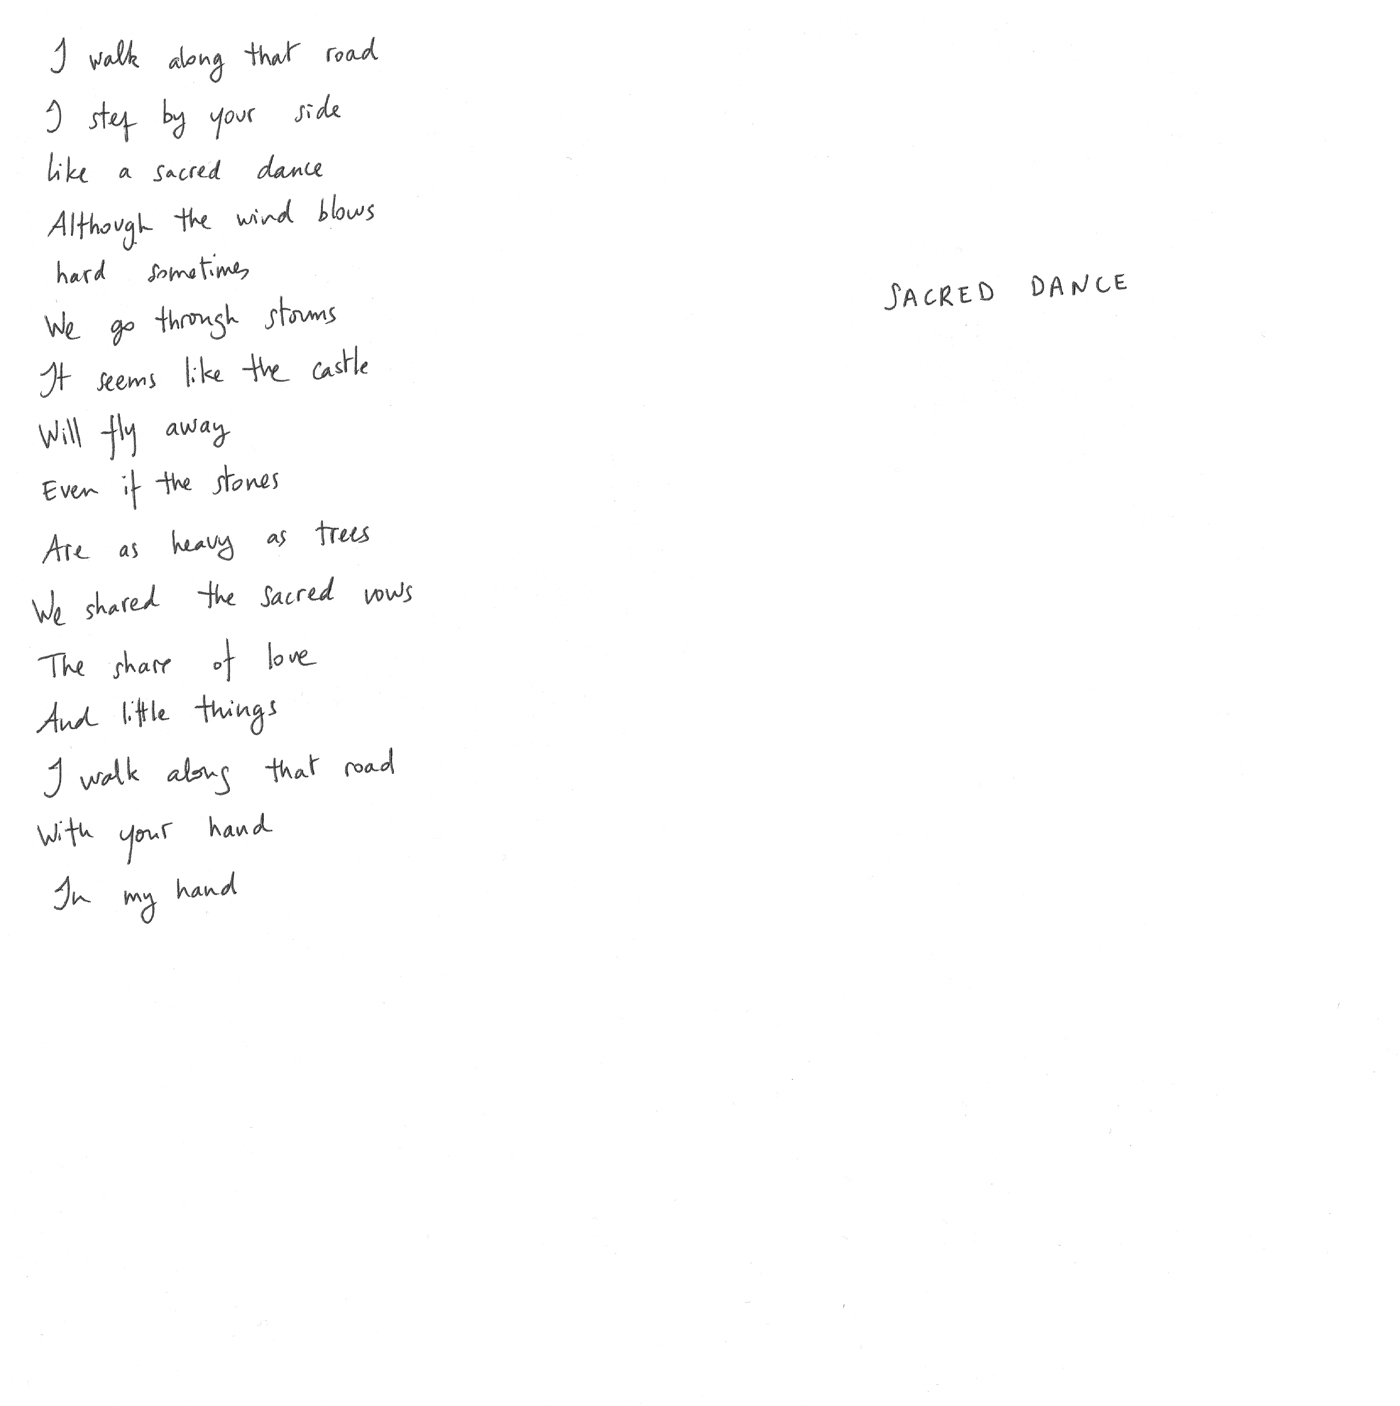 I walk along that road
I step by your side
like a sacred dance
Although the wind blows
hard sometimes
We go through storms
It seems like the castle
Will fly away
Even if the stones
Are as heavy as trees
We shared the sacred vows
The share of love
And little things
I walk along that road
With your hand
In my hand
SACRED DANCE